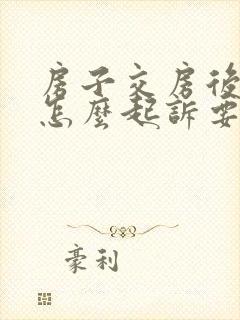 房子交房後
怎麼起訴要
豪利